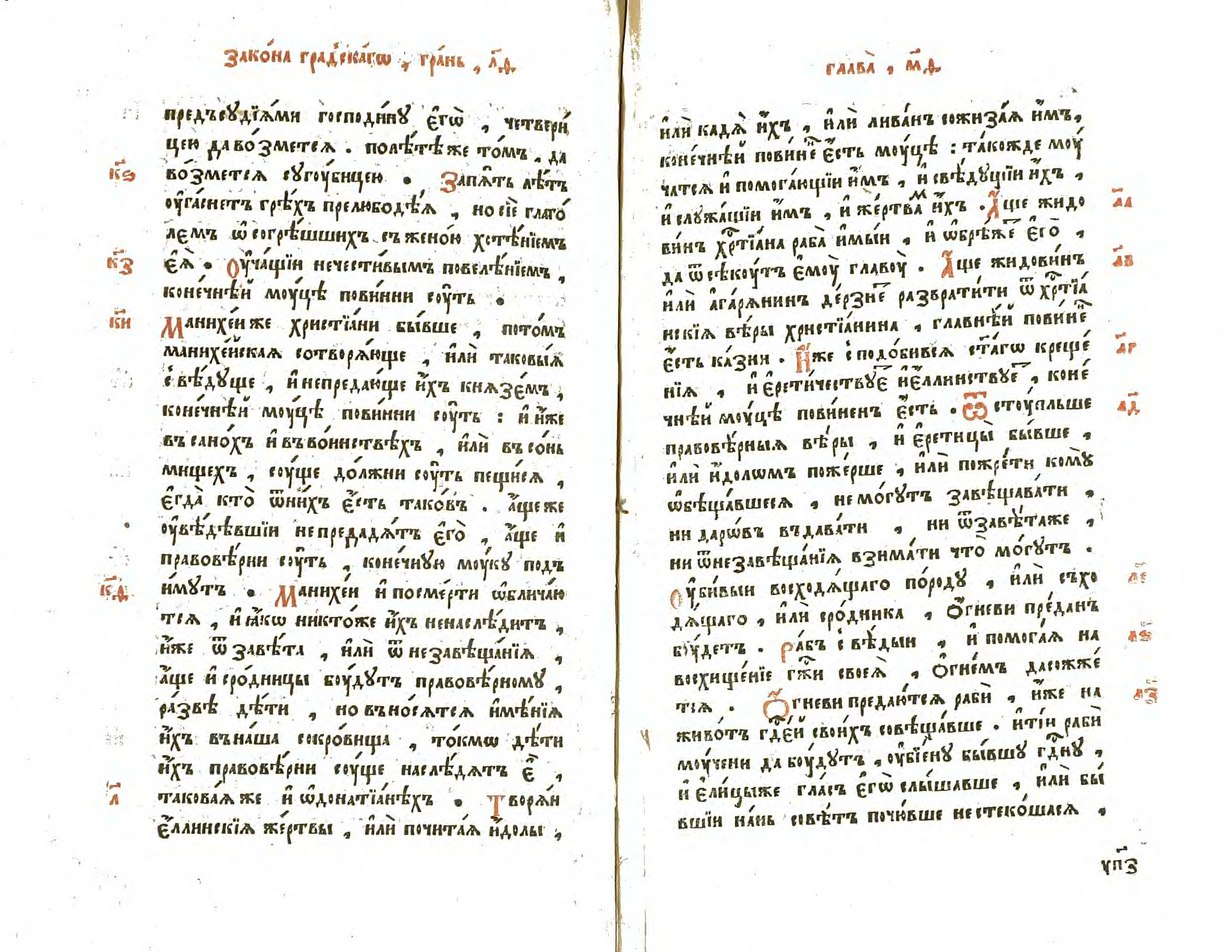 Зако́на гра́дскагѡ , гра́нь , л҃ѳ
предъсꙋдїѧ́ми господи́нꙋ є҆гѡ̀ , четвери́
цею да во́зметсѧ . полѣ́тѣже то́мъ , да
к҃ѕ во́зметсѧ сꙋгꙋ́бицею . Запѧ́ть лѣ́тъ
оу҆га́снетъ грѣ́хъ прелюбодѣ́ѧ , но сїѐ глаго́
лемъ ѡ҆ согрѣ́шшихъ съ жено́ю хотѣ́нїемъ
к҃з є҆ѧ̀ . Оу҆ча́щїи нечести́вымъ повелѣ́нїемъ ,
коне́чнѣй мꙋ́цѣ пови́нни сꙋ́ть .
к҃и Манихе́и же христїа́ни бы́вше , пото́мъ
манихе́йскаѧ сотворѧ́юще , и҆лѝ таковы́ѧ
свѣ́дꙋще , и҆ непредаю́ще и҆́хъ кнѧзе́мъ ,
коне́чнѣй мꙋ́цѣ пови́нни сꙋ́ть : и҆ и҆́же
въ сано́хъ и҆ въ во́инствѣхъ , и҆лѝ въ со́нь
мищехъ , сꙋ́ще до́лжни сꙋ́ть пещи́сѧ ,
є҆гда̀ кто̀ ѿ ни́хъ є҆́сть тако́въ . а҆́ще же
оу҆вѣ́дѣвшїи непредадѧ́тъ є҆го̀ , а҆́ще и҆
правовѣ́рни сꙋ́ть , коне́чнꙋю мꙋ́кꙋ подъ
к҃ѳ и҆́мꙋтъ . Манихе́и и҆ посме́рти ѡ҆блича́ю
тсѧ , и҆ ꙗ҆́кѡ никто́же и҆́хъ ненаслѣ́дитъ ,
и҆́же ѿ завѣ́та , и҆лѝ ѿ незавѣща́нїѧ ,
а҆́ще и҆ сро́дницы бꙋ́дꙋтъ правовѣ́рномꙋ ,
ра́звѣ дѣ́ти , но въно́сѧтсѧ и҆мѣ́нїѧ
и҆́хъ въ на́ша сокро́вища , то́кмѡ дѣ́ти
и҆́хъ правовѣ́рни сꙋ́ще наслѣ́дѧтъ є҆̀ ,
л҃ такова́ѧ же и҆ ѡ҆ донатїа́нѣхъ . Творѧ́и
є҆́ллинскїѧ же́ртвы , и҆лѝ почита́ѧ и҆́долы ,
глава̀ , м҃ѳ
и҆лѝ кадѧ̀ и҆́хъ , и҆лѝ лива́нъ сожиза́ѧ и҆́мъ ,
коне́чнѣй пови́не є҆́сть мꙋ́цѣ : та́кожде мꙋ́
чатсѧ и҆ помога́ющїи и҆́мъ , и҆ свѣ́дꙋщїи и҆́хъ ,
и҆ слꙋжа́щїи и҆́мъ , и҆ же́ртвам и҆́хъ . А҆́ще жидо л҃а
ви́нъ хрⷭ҇тїа́на раба̀ и҆мы́и , и҆ ѡ҆брѣ́же є҆го̀ ,
да ѿсѣкꙋ́тъ є҆мꙋ̀ главꙋ̀ . А҆́ще жидови́нъ л҃в
и҆лѝ а҆гарѧ́нинъ де́рзне разврати́ти ѿ хрⷭ҇тїа́
нскїѧ вѣ́ры христїа́нина , гла́внѣй пови́не
є҆́сть ка́зни . И҆́же сподо́бивсѧ ст҃а́гѡ креще́ л҃г
нїѧ , и҆ є҆рети́чествꙋе и҆ є҆́ллинствꙋе , коне́
чнѣй мꙋ́цѣ пови́ненъ є҆́сть . Ѿстꙋ́пльше л҃д
правовѣ́рныѧ вѣ́ры , и҆ є҆ретицы̀ бы́вше ,
и҆лѝ и҆́долѡмъ поже́рше , и҆лѝ пожре́ти комꙋ̀
ѡ҆бѣща́вшесѧ , не мо́гꙋтъ завѣщава́ти ,
ни даро́въ въдава́ти , ни ѿ завѣ́та же ,
ни ѿ незавѣща́нїѧ взима́ти что̀ мо́гꙋтъ .
Оу҆би́выи восходѧ́щаго по́родꙋ , и҆лѝ съхо л҃е
дѧ́щаго , и҆лѝ сро́дника , О҆гневи пре́данъ
бꙋ́детъ . Ра́бъ свѣ́дыи , и҆ помога́ѧ на л҃ѕ
восхище́нїе гж҃ѝ своеѧ̀ , О҆гне́мъ да сожже́
тсѧ . О҆́гневи предаю́тсѧ рабѝ , и҆́же на л҃з
живо́тъ гд҃е́й свои́хъ совѣща́вше . и҆ ті́и рабѝ
мꙋ́чени да бꙋ́дꙋтъ , оу҆бїе́нꙋ бы́вшꙋ гд҃нꙋ ,
и҆ є҆ли́цыже гла́съ є҆гѡ̀ слы́шавше , и҆лѝ бы́
вшїи на́нь совѣ́тъ почю́вше не стеко́шасѧ ,
ѵп҃з